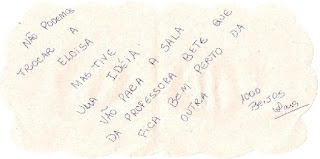 NÃO PODEMOS
TROCAR A
ELOISA
MAS TIVE
UMA IDÉIA
VÃO PARA A SALA
DA PROFESSORA BETE QUE
FICA BEM PERTO DA
OUTRA
1000
BEIJOS